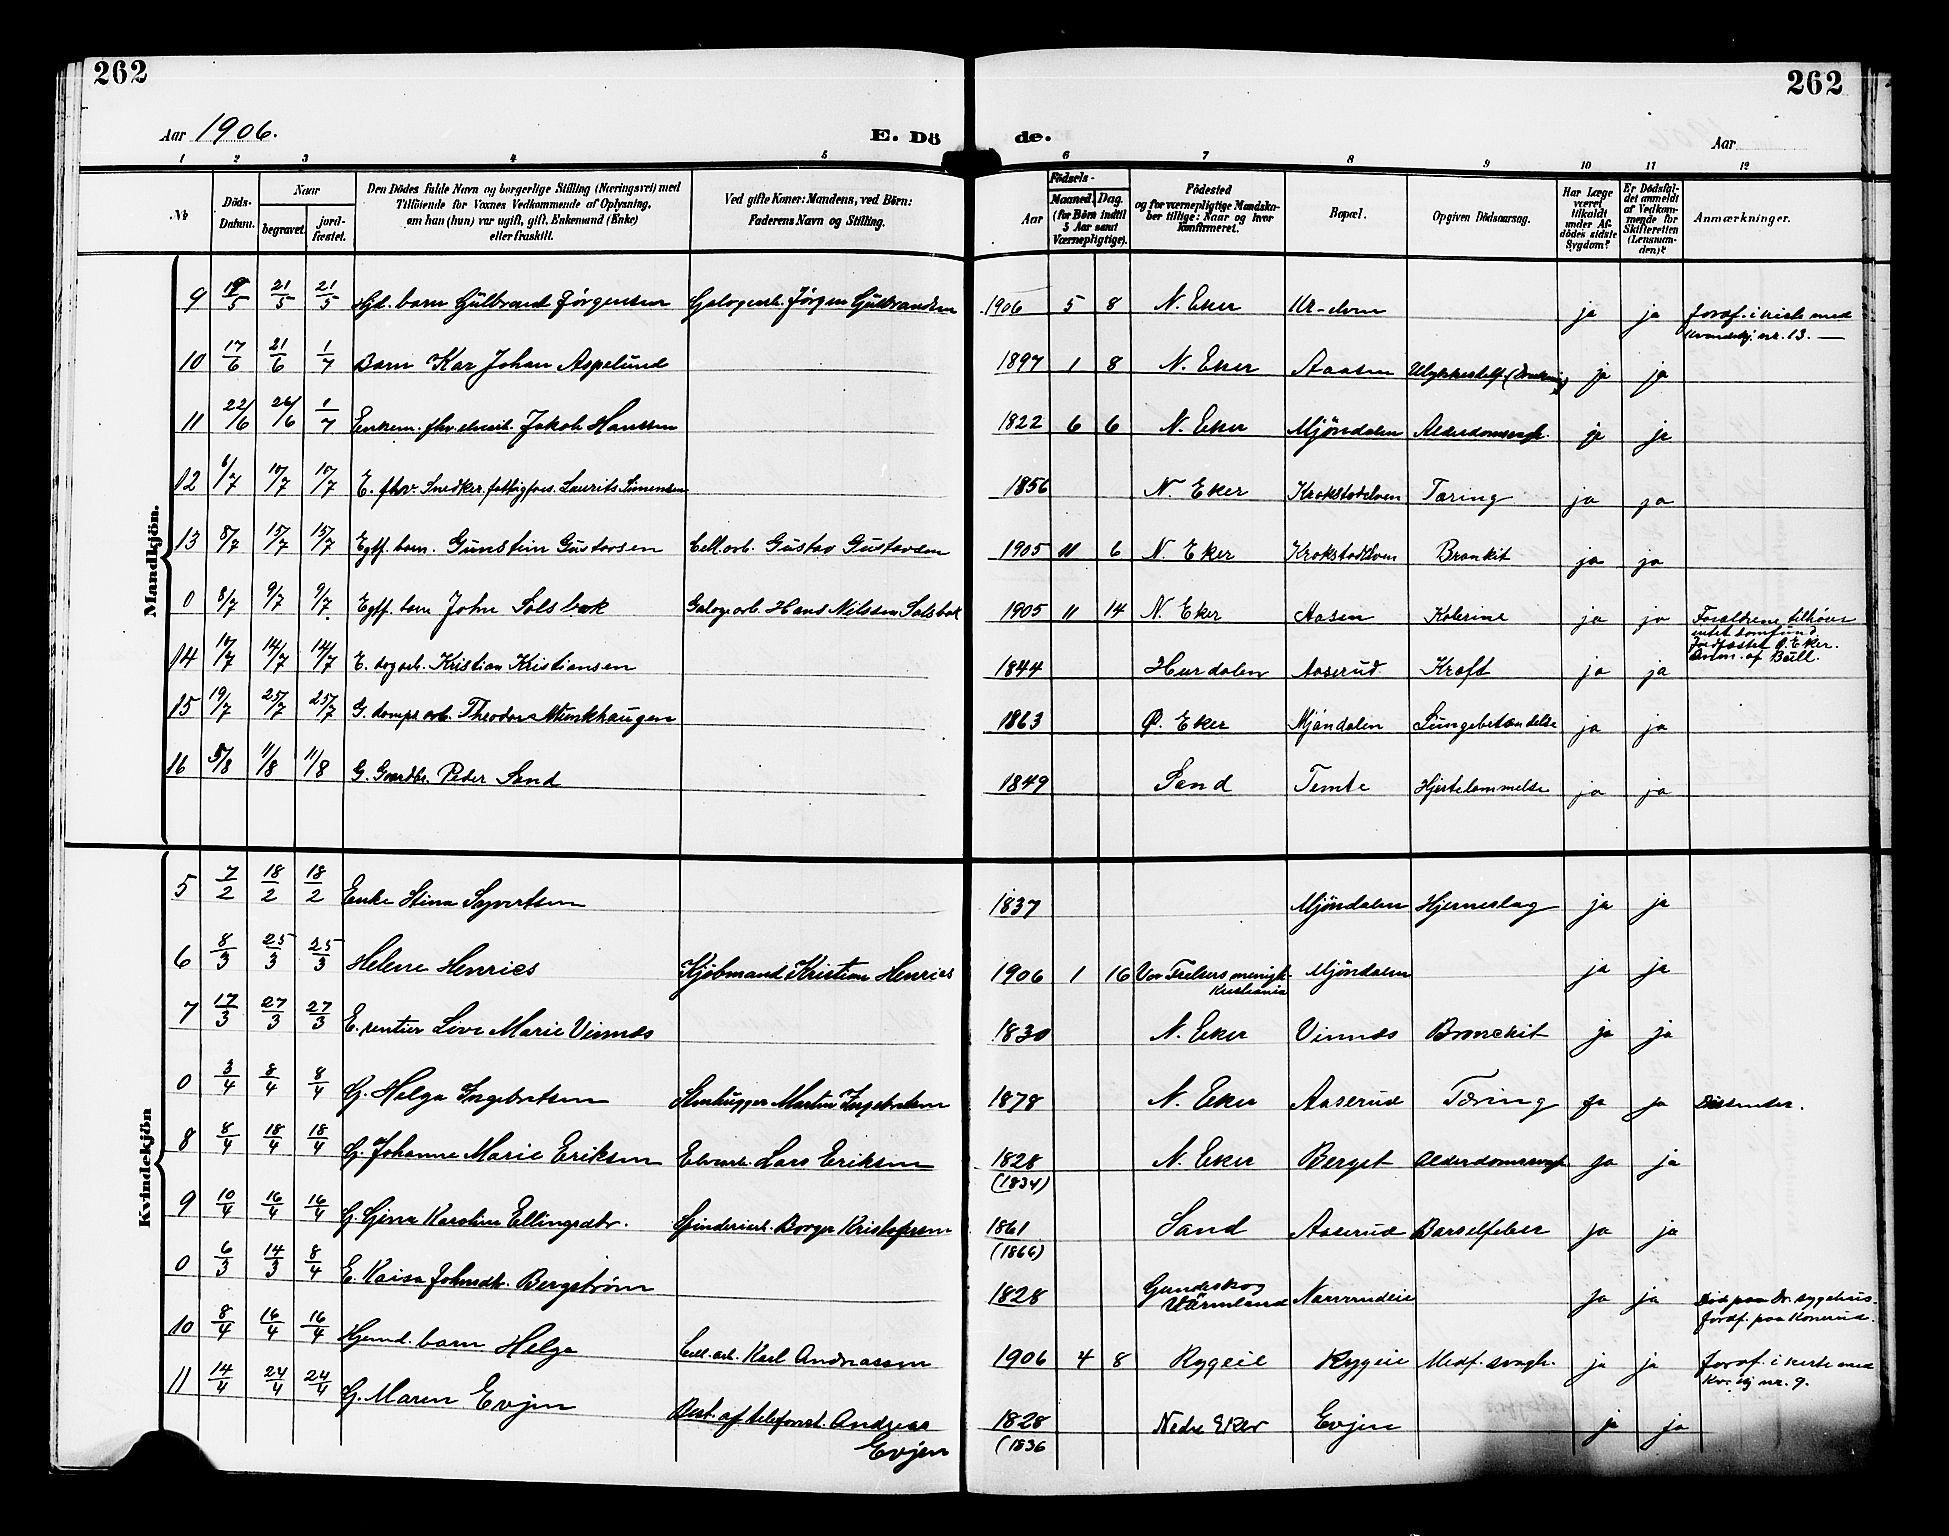 262
262
Aar 1906.
E. Dö
de.
Aar
1 2 3 4 5 6 7 8 9 10 11 12
№
Döds-Datum.
Naar
begravet.
jord-fæstet.
Den Dödes fulde Navn og borgerlige Stilling (Næringsvei) med
Tilföiende for Voxnes Vedkommende af Oplysning,
om han (hun) var ugift, gift, Enkemand (Enke)
eller fraskilt.
Ved gifte Koner: Mandens, ved Börn:
Faderens Navn og Stilling.
Födsels-
Aar
Maaned.
Dag.
(for Börn indtil
5 Aar samt
Værnepligtige).
Födested
og for værnepligtige Mandska-
ber tillige: Naar og hvor
konfirmeret.
Bopæl.
Opgiven Dödsaarsag.
Har Læge
været
tilkaldt
under Af-
dödes sidste
Sygdom?
Er Dödsfal-
det anmeldt
af Vedkom-
mende for
Skifteretten
(Lensman-
den)?
Anmærkninger.
Mandkjön.
9 19/5 21/5 21/5 Hjd. barn Gulbrand Jörgensen Galogearb. Jörgen Gulbrandsen 1906 5 8 N. Eker ja ja jordf. i kirke med
Kvindekj. nr. 13. —
10 17/6 21/6 1/7 Barn Kar Johan Aspelund 1897 1 8 N. Eker Aasen ja ja
11 22/6 26/6 1/7 Enkem. fhv. elvearb. Jakob Hanssen 1822 6 6 N. Eker Mjöndalen Alderdomssvagh. ja ja
12 6/7 10/7 10/7 E. fhv. Snedker, fattigfors. Laurits Simensen 1856 N. Eker Krokstadelven Tæring ja ja
13 8/7 15/7 15/7 Egtf. barn. Gunstein Gustavsen Cell.arb. Gustav Gustavsen 1905 11 6 N. Eker Krokstadelven Bronkit ja ja
0 8/7 9/7 9/7 Egtf. barn John Solsbæk Galogearb. Hans Nilssen Solsbæk 1905 11 14 N. Eker Aasen Kolerine ja ja Forældrene tilhører
intet samfund.
Jordfæstet Ø. Eker.
Anm. af Büll.
14 10/7 14/7 14/7 E. dagarb. Kristian Kristiansen 1844 Hurdalen Aaserud Kræft ja ja
15 19/7 25/7 25/7 G. dampsarb. Theodor Munkhaugen 1863 Ø. Eker Mjöndalen Lungebetændelse ja ja
16 5/8 11/8 11/8 G. Gaardbr. Peder Sand 1849 Sand Temte Hjertelammelse ja ja
Kvindekjön
5 7/2 18/2 18/2 Enke Stina Syvertsen 1837 Mjöndalen Hjerneslag ja ja
6 8/3 25/3 25/3 Helene Henries Kjöbmand Kristian Henries 1906 1 16 Vor Frelsers menigh.
Kristiania Mjöndalen ja ja
7 17/3 27/3 27/3 E. rentier Live Marie Vinnæs 1830 N. Eker Vinnæs Bronchit ja ja
0 3/4 8/4 8/4 G. Helga Ingebretsen Stenhugger Martin Ingebretsen 1878 N. Eker Aaserud Tæring ja ja Dissenter.
8 8/4 18/4 18/4 G. Johanne Marie Eriksen Elvearb. Lars Eriksen 1828
(1834) N. Eker Berget Alderdomssvagh. ja ja
9 10/4 16/4 16/4 G. Gjena Karoline Ellingsdtr. Borger Kristofersen 1861
(1866) Sand Aaserud Barselfeber ja ja
0 6/3 14/3 8/4 E. Kaisa Johnsdtr. Bergström 1828 Gundeskog
Värmland Narverudeie ja ja Död paa Dr. sygehus.
Jordf. paa Konerud.
10 8/4 16/4 16/4 Hjemd. barn Helga Cell. arb. Karl Andreassen 1906 4 8 Rygeie Rygeie Medf. svagh. ja ja jordf. i kirke med
Kv. kj nr. 9.
11 14/4 24/4 24/4 G. Maren Evjen Best. af telefonst. Andreas
Evjen 1828
(1836 Nedre Eker Evjen ja ja